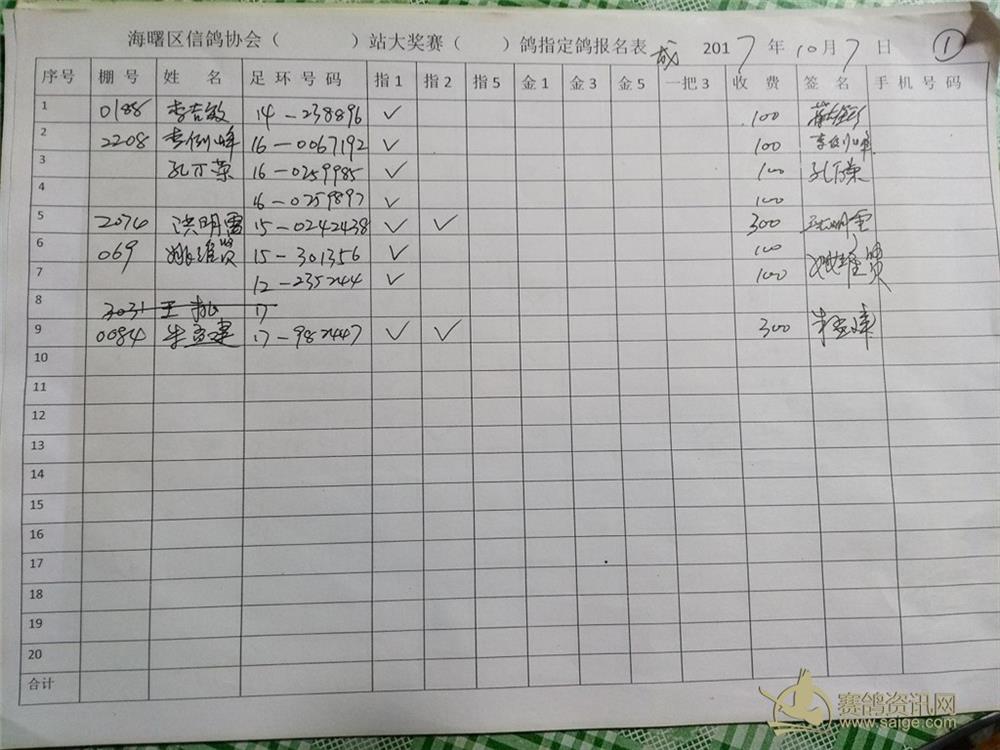 海曙区信鸽协会（ ）站大奖赛（ ）鸽指定鸽报名表 成 2017年10月7日 ①
序号 棚号 姓名 足环号码 指1 指2 指5 金1 金3 金5 一把3 收费 签名 手机号码
1 0188 李吉敏 14-238896 ✓ 100
2 2208 李例峰 16-0067192 ✓ 100 李例峰
3 孔万荣 16-0259985 ✓ 100 孔万荣
4 16-0259897 ✓ 100
5 2074 洪明雷 15-0242438 ✓ ✓ 300 洪明雷
6 069 姚维贤 15-301356 ✓ 100 姚维贤
7 12-235244 ✓ 100
8 3031 王 17
9 0084 朱孟建 17-982447 ✓ ✓ 300
10
11
12
13
14
15
16
17
18
19
20
合计
赛鸽资讯网
www.saige.com